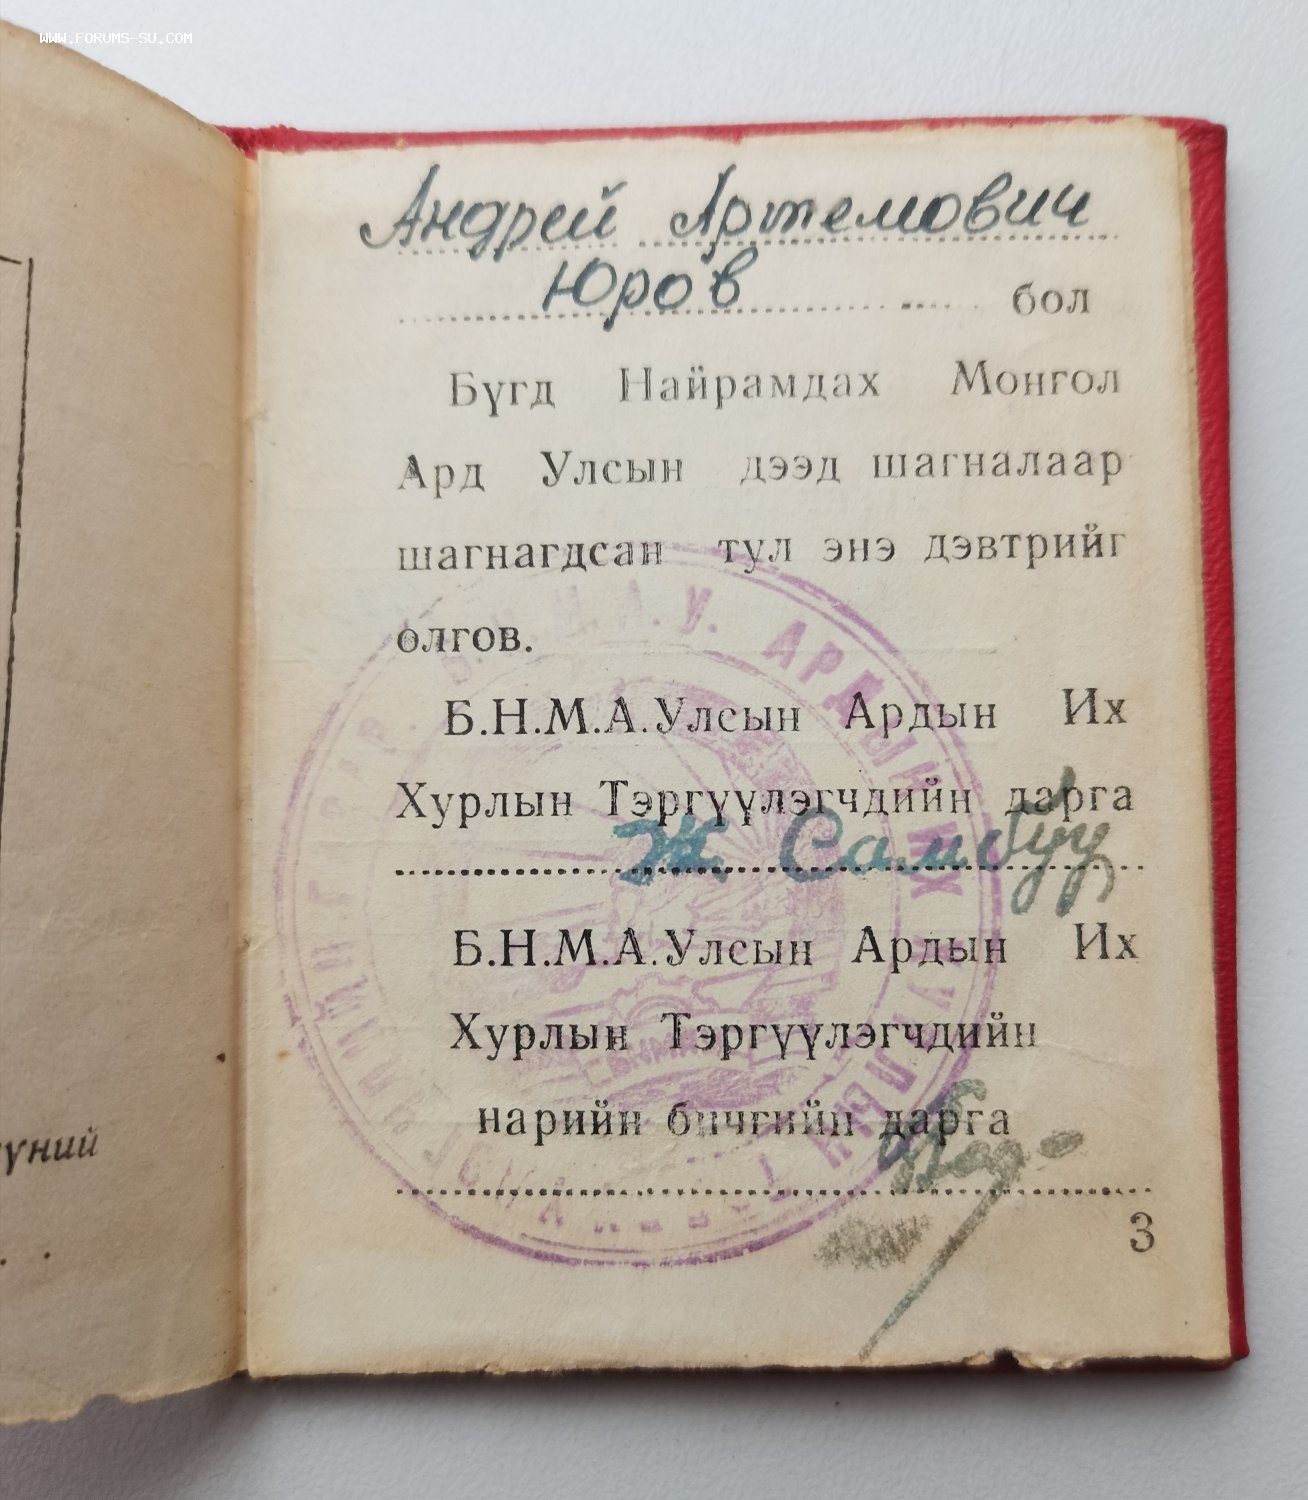 WWW.FORUMS-SU.COM
Андрей Артемович
Юров бол
Бүгд Найрамдах Монгол
Ард Улсын дээд шагналаар
шагнагдсан тул энэ дэвтрийг
олгов.
Б.Н.М.А.Улсын Ардын Их
Хурлын Тэргүүлэгчдийн дарга
Ж. Самбуу
Б.Н.М.А.Улсын Ардын Их
Хурлын Тэргүүлэгчдийн
нарийн бичгийн дарга
3